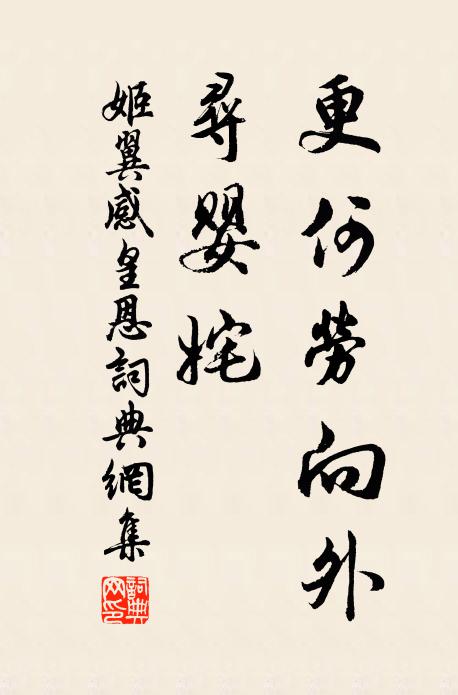 更何勞向外
尋嬰姹
姬翼感皇恩詞典網集
詞典網印